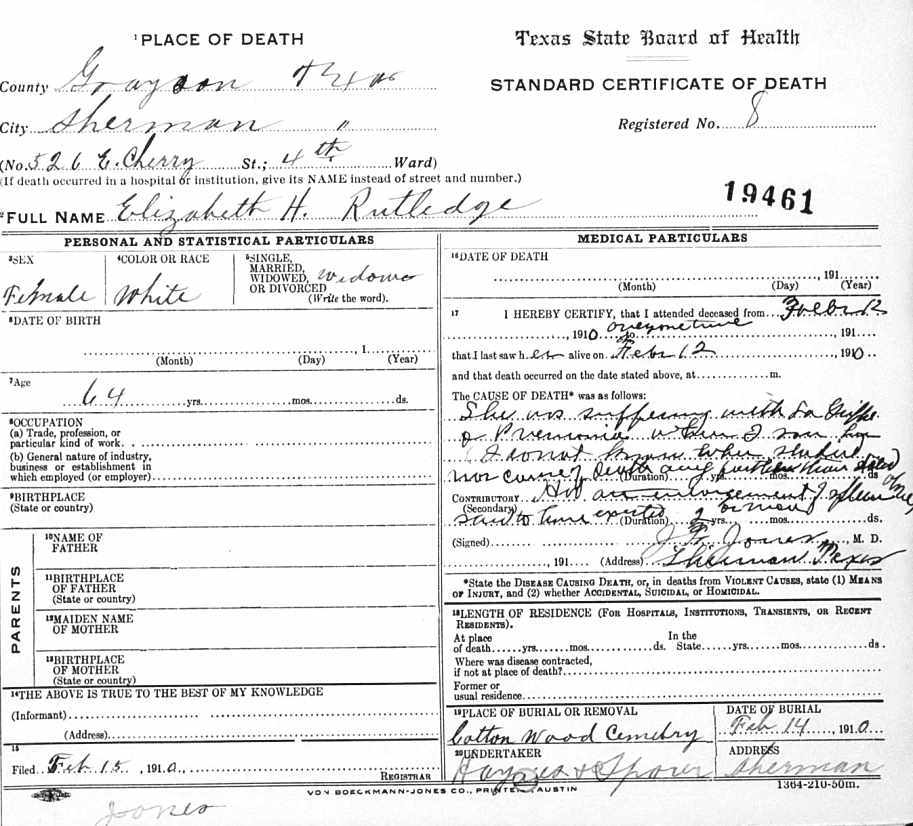 ¹PLACE OF DEATH
County Grayson Texas
City Sherman "
(No. 526 E. Cherry St.; 4th Ward)
(If death occurred in a hospital or institution, give its NAME instead of street and number.)
²FULL NAME Elizabeth H. Rutledge
Texas State Board of Health
STANDARD CERTIFICATE OF DEATH
Registered No. 8
19461
PERSONAL AND STATISTICAL PARTICULARS
³SEX
Female
⁴COLOR OR RACE
White
⁵SINGLE,
MARRIED,
WIDOWED,
OR DIVORCED
(Write the word).
Widow
⁶DATE OF BIRTH
, 1
(Month) (Day) (Year)
⁷Age
64 yrs. mos. ds.
⁸OCCUPATION
(a) Trade, profession, or
particular kind of work.
(b) General nature of industry,
business or establishment in
which employed (or employer)
⁹BIRTHPLACE
(State or country)
PARENTS
¹⁰NAME OF
FATHER
¹¹BIRTHPLACE
OF FATHER
(State or country)
¹²MAIDEN NAME
OF MOTHER
¹³BIRTHPLACE
OF MOTHER
(State or country)
¹⁴THE ABOVE IS TRUE TO THE BEST OF MY KNOWLEDGE
(Informant)
(Address)
¹⁵
Filed Feb 15, 1910,
REGISTRAR
MEDICAL PARTICULARS
¹⁶DATE OF DEATH
, 191
(Month) (Day) (Year)
¹⁷ I HEREBY CERTIFY, that I attended deceased from Feb 12
, 1910 only one time to , 191
that I last saw her alive on Feb 12, 1910
and that death occurred on the date stated above, at m.
The CAUSE OF DEATH* was as follows:
She was suffering with La Grippe
& Pneumonia when I saw her
I do not know when started
nor cause of death any further than stated
(Duration) yrs. mos. ds
CONTRIBUTORY an enlargement of spleen
(Secondary)
said to have existed 2 or more
(Duration) yrs. mos. ds.
(Signed) Jones, M. D.
, 191 (Address) Sherman Texas
*State the DISEASE CAUSING DEATH, or, in deaths from VIOLENT CAUSES, state (1) MEANS
OF INJURY, and (2) whether ACCIDENTAL, SUICIDAL, or HOMICIDAL.
¹⁸LENGTH OF RESIDENCE (FOR HOSPITALS, INSTITUTIONS, TRANSIENTS, OR RECENT
RESIDENTS).
At place
of death yrs. mos. ds.
In the
State yrs. mos. ds.
Where was disease contracted,
if not at place of death?
Former or
usual residence
¹⁹PLACE OF BURIAL OR REMOVAL
Cotton Wood Cemetry
DATE OF BURIAL
Feb 14, 1910.
²⁰UNDERTAKER
ADDRESS
Sherman
VON BOECKMANN-JONES CO., PRINTERS, AUSTIN
1364-210-50m.
Jones